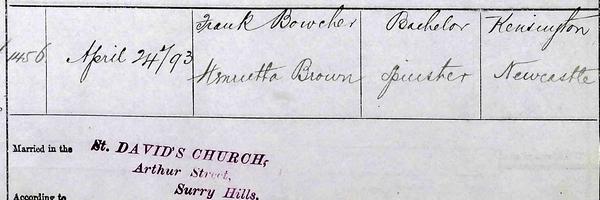 Frank Bowcher Bachelor Kensington
1456 April 24/93
Henrietta Brown Spinster Newcastle
Married in the St. DAVID'S CHURCH,
Arthur Street,
Surry Hills.
According to